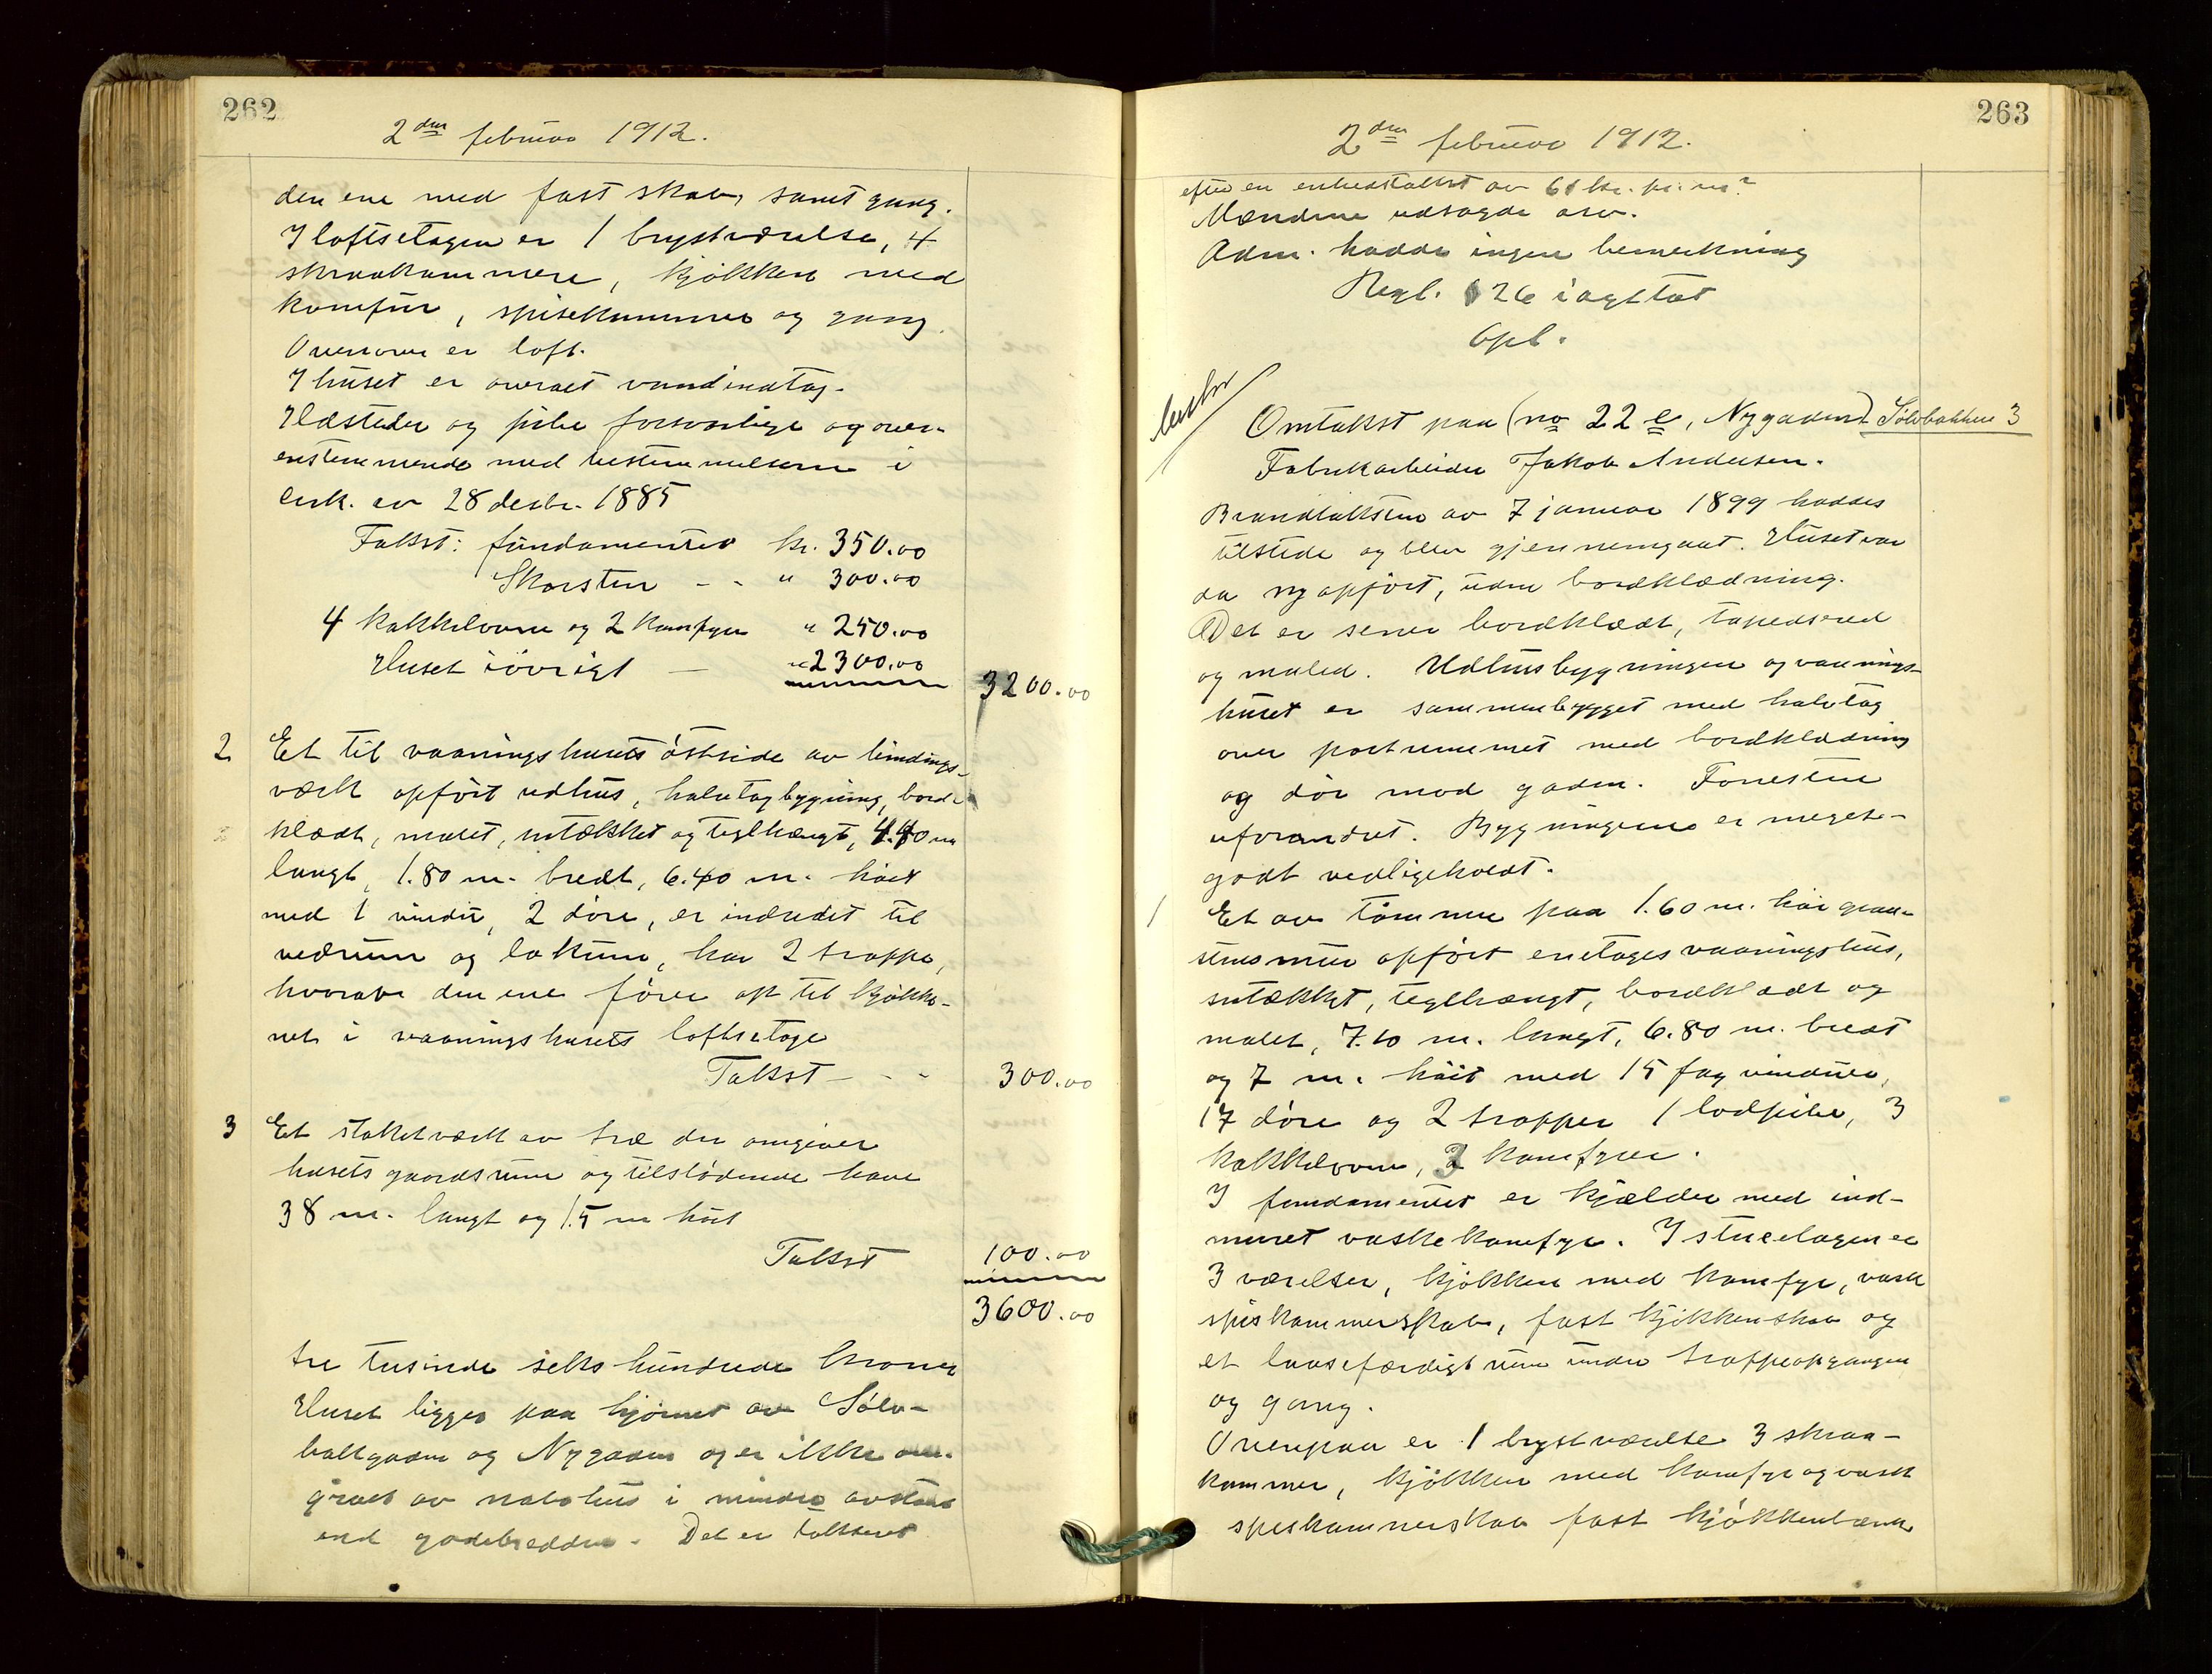 262
2den februar 1912.
den ene med fast skab, samt gang.
I loftsetagen er 1 brystværelse, 4
skraakammere, kjøkken med
komfur, spisekammer og gang.
Ovenover er loft.
I huset er overalt vandindtag.
Ildsteder og piber forsvarlige og over-
enstemmende med bestemmelserne i
cirk. av 28 desbr. 1885
Takst: fundamenter kr. 350.00
Skorsten - - " 300.00
4 kakkelovne og 2 komfyrer " 250.00
Huset iøvrigt — " 2300.00
3200.00
2 Et til vaaningshusets østside av bindings-
værk opført udhus, halvtagbygning, bord-
klædt, malet, sutækket og teglhængt, 4.40 m
langt, 1.80 m. bredt, 6.40 m. høit
med 1 vindu, 2 døre, er indredet til
vedrum og lokum, har 2 trapper,
hvorav den ene fører op til kjøkke-
net i vaaningshusets loftsetage
Takst — - - 300.00
3 Et stakitværk av træ der omgiver
husets gaardsrum og tilstødende have
38 m. langt og 1.5 m høit
Takst 100.00
3600.00
tre tusinde seks hundrede kroner
Huset ligger paa hjørnet av Sølv-
bakgaden og Nygaden og er ikke om-
givet av nabohus i mindre avstand
end gadebredden. Det er takseret
263
2den februar 1912.
efter en enhedstakst av 61 kr. pr. m²
Mændene udsagde asv.
Adm. hadde ingen bemerkning
Regl. § 26 iagttat
Opl.
Omtakst paa (no 22 e, Nygaden) Sølvbakken 3
Fabrikarbeider Jakob Andersen.
Brandtaksten av 7 januar 1899 haddes
tilstede og blev gjennemgaat. Huset var
da ny opført, uden bordklædning.
Det er senere bordklædt, tapedsered
og maled. Udhusbygningen og vaanings-
huset er sammenbygget med halvtag
over portrummet med bordklædning
og dør mod gaden. Forresten
uforandret. Bygningene er meget
godt vedligeholdt.
1 Et av tømmer paa 1.60 m. høi graa-
stensmur opført enetages vaaningshus,
sutækket, teglhængt, bordklædt og
malet, 7.10 m. langt, 6.80 m. bredt
og 7 m. høit med 15 fag vinduer,
17 døre og 2 trapper 1 lodpibe, 3
kakkelovne, 3 komfyrer.
I fundamentet er kjælder med ind-
muret vaskekomfyr. I stueetagen er
3 værelser, kjøkken med komfyr, vask
spiskammerskab, fast kjøkkenskab og
et laasefærdigt rum under trappeopgangen
og gang.
Ovenpaa er 1 brystværelse 3 skraa-
kammer, kjøkken med komfyr og vask
spiskammerskab fast kjøkkenbænk